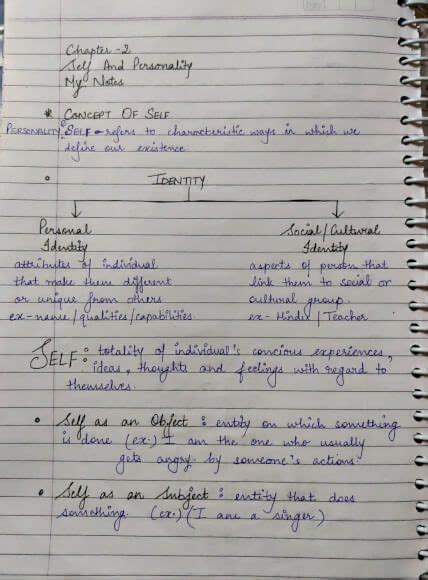 Chapter - 2
Self And Personality
My Notes
* CONCEPT OF SELF
PERSONALITY & SELF - refers to characteristic ways in which we
define our existence
IDENTITY
Personal Identity
attributes of individual
that make them different
or unique from others
ex- name / qualities / capabilities.
Social / Cultural Identity
aspects of person that
link them to social or
cultural group.
ex - Hindu / Teacher
SELF : totality of individual's concious experiences,
ideas, thoughts and feelings with regard to
themselves.
• Self as an Object : entity on which something
is done (ex.) I am the one who usually
gets angry by someone's actions.
• Self as an Subject : entity that does
something. (ex.) (I am a singer)